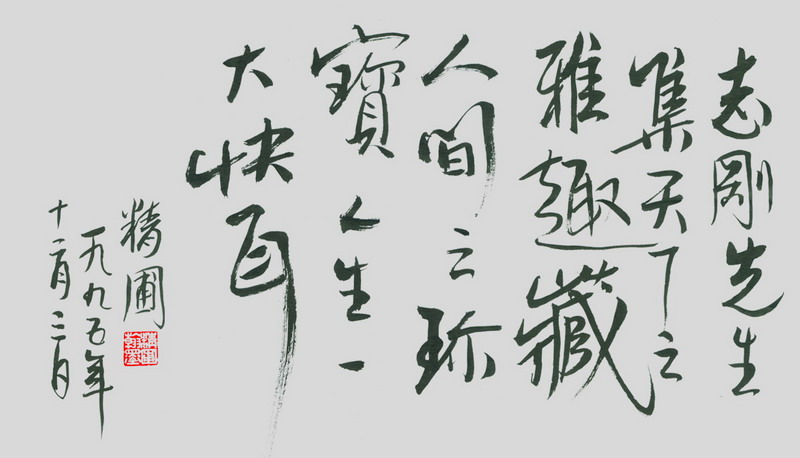 志剛先生
集天下之
雅趣藏
人間之珎
寶人生一
大快耳
精圃
一九九五年
十二月二日